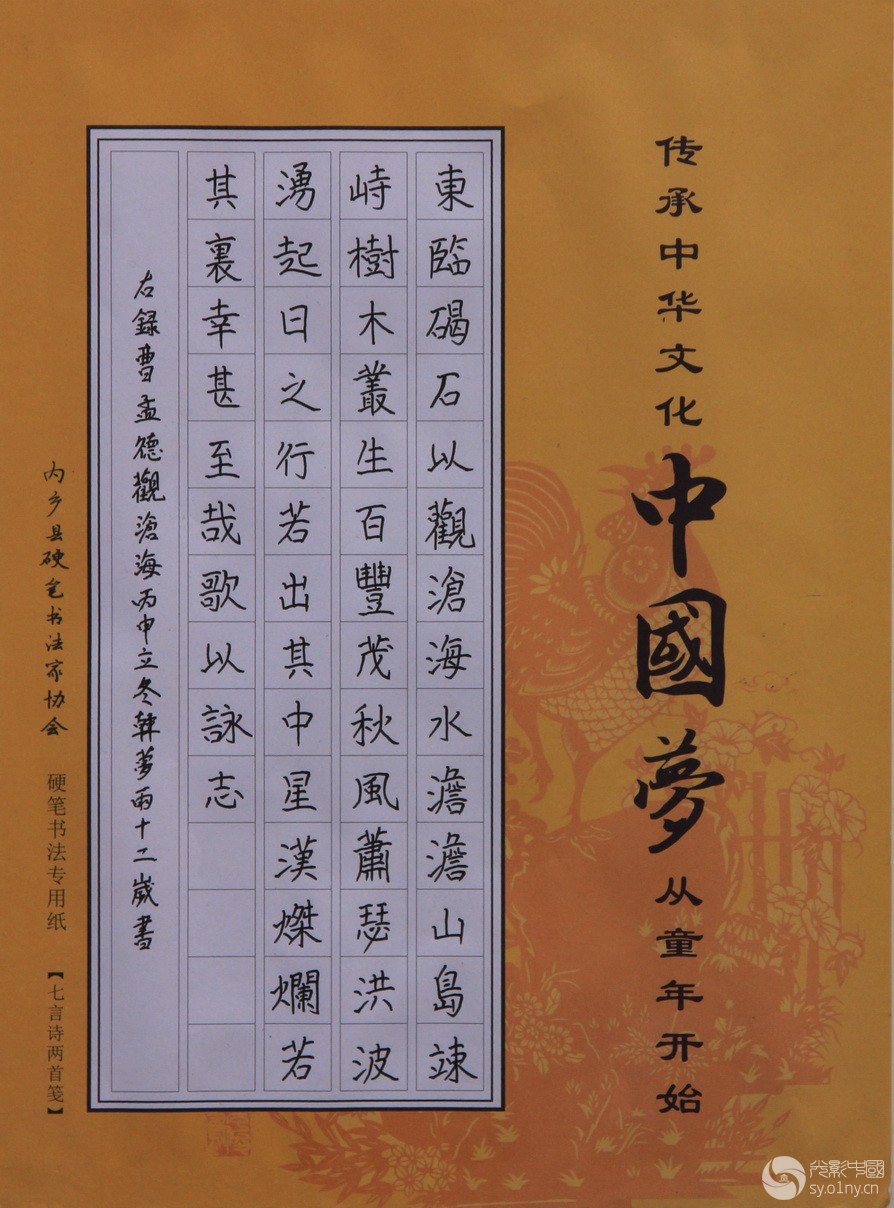 传承中华文化
中國夢
从童年开始
東臨碣石以觀滄海水澹澹山島竦
峙樹木叢生百豐茂秋風蕭瑟洪波
湧起日之行若出其中星漢燦爛若
其裏幸甚至哉歌以詠志
右録曹孟德觀滄海丙申立冬韓夢雨十二歲書
内乡县硬笔书法家协会 硬笔书法专用纸 【七言诗两首笺】
光影中國
sy.o1ny.cn